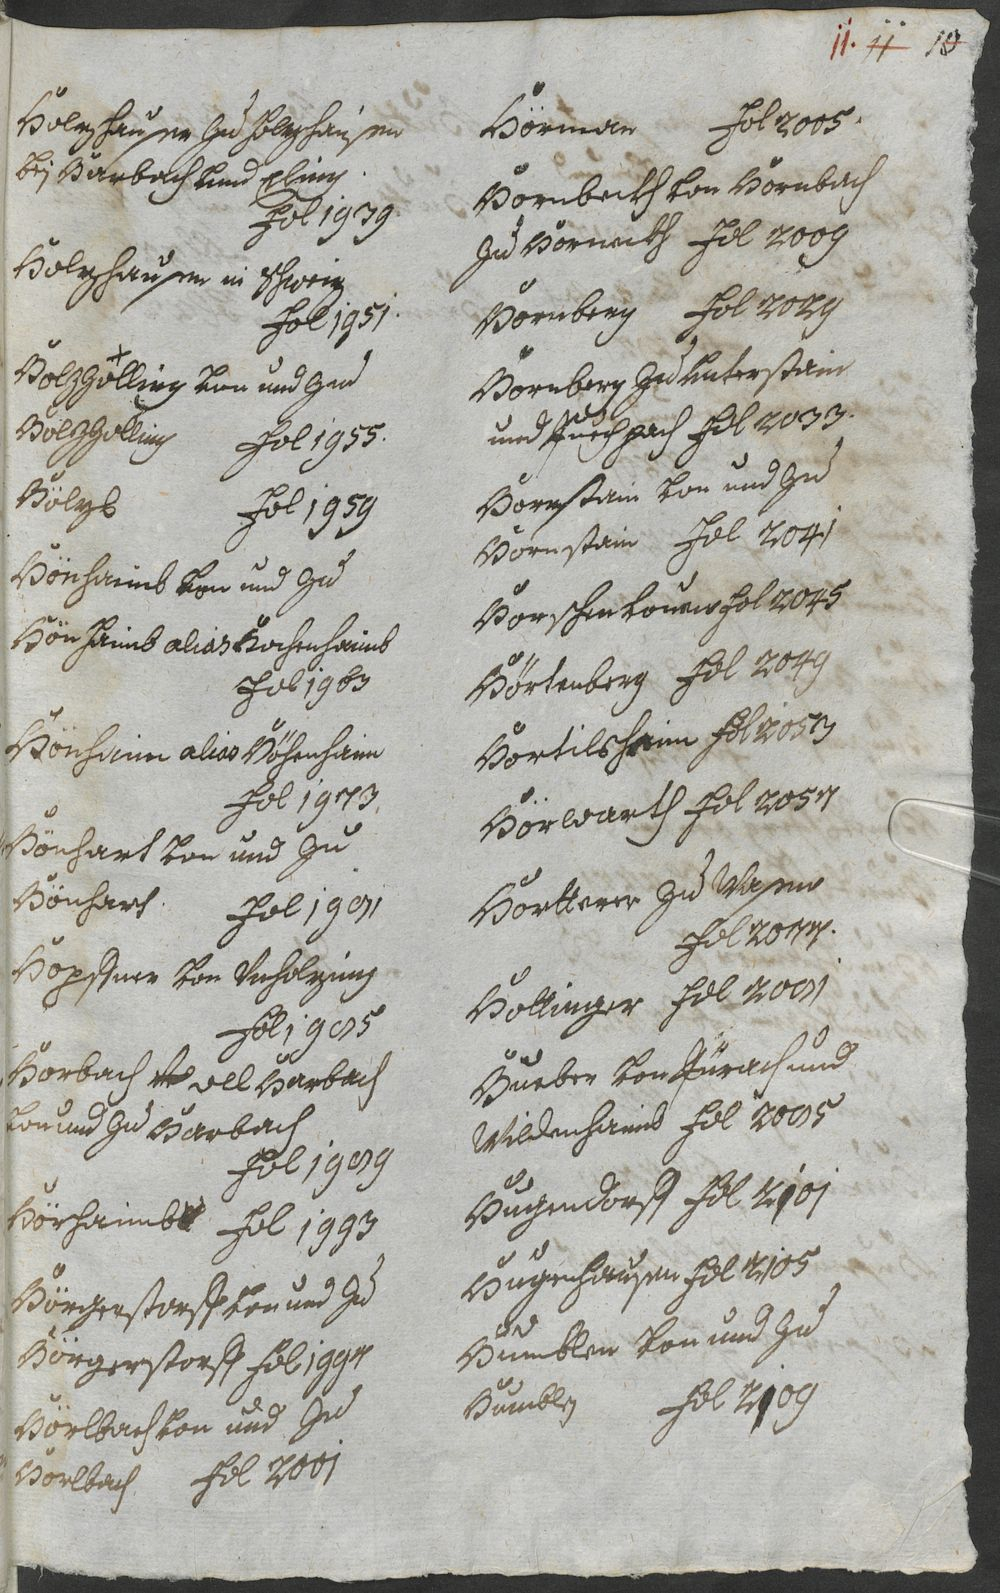 11. 11 10
Holzhauser Zu Holzhausen
bej Harbach und
Fol 1939
Holzhausen in Schweiz
Fol 1951.
Holzgölling von und Zu
Holzgolling Fol 1955.
Hölzl Fol 1959
Hönhaimb von und Zu
Hönhaimb alias Hochenhaimb
Fol 1963
Hönhaim alias Höhenhaim
Fol 1973
Hönhart von und Zu
Hönhart Fol 1981
Hopfner von
Fol 1985
Horbach vell Harbach
von und Zu Harbach
Fol 1989
Hörhaimb Fol 1993
Hörgerstorff von und Zu
Hörgerstorff Fol 1997
Hörlbach von und Zu
Hörlbach Fol 2001
Hörman Fol 2005.
Hornbeckh von Hornbach
Zu Horneckh Fol 2009
Hornberg Fol 2029
Hornberg Zu Unterstain
und Puechpach Fol 2033.
Hornstain von und Zu
Hornstain Fol 2041
Fol 2045
Hörtenberg Fol 2049
Hortilshaim Fol 2053
Hörwarth Fol 2057
Hortterer Zu Wasen
Fol 2077.
Hottinger Fol 2081
Hueber von Pürach und
Wildenhaimb Fol 2085
Hugendorff Fol 2101
Hugenhausen Fol 2105
Humblen von und Zu
Humbln Fol 2109